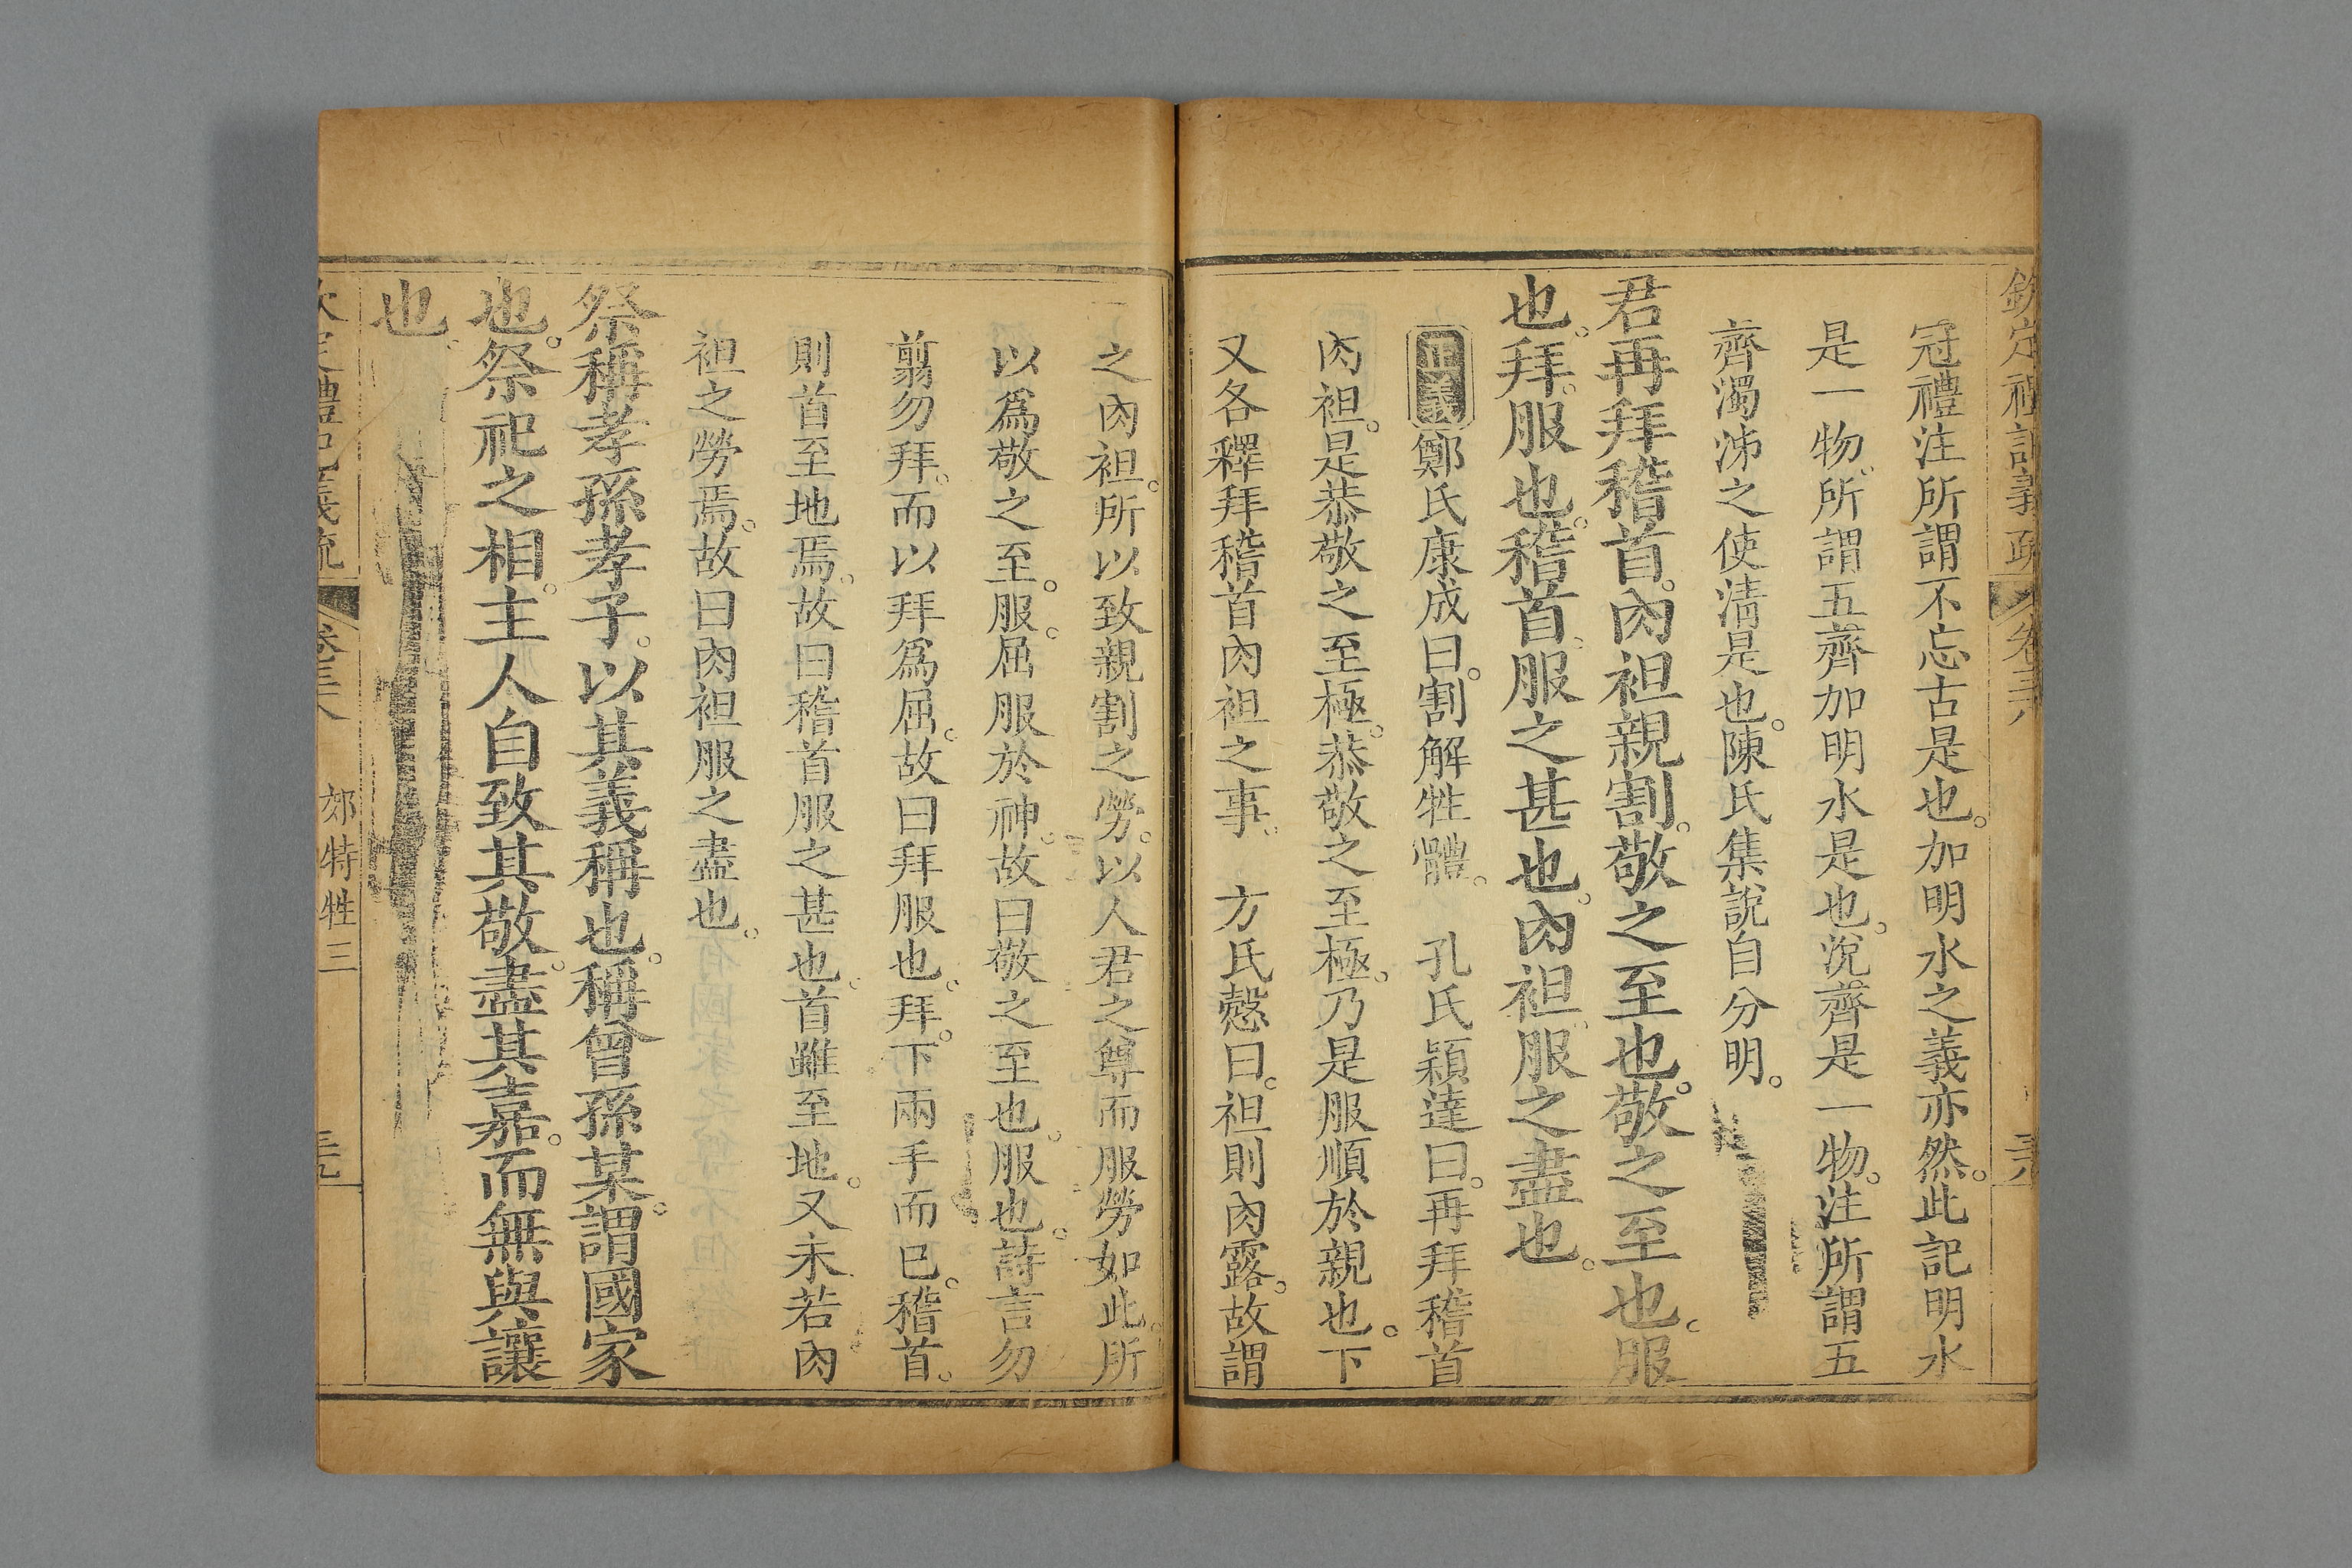 欽定禮記義疏 卷三十八 三十八
冠禮注所謂不忘古是也。加明水之義亦然。此記明水
是一物。所謂五齊加明水是也。涗齊是一物。注所謂五
齊濁泲之使淸是也。陳氏集說自分明。
君再拜稽首。肉袒親割。敬之至也。敬之至也。服
也。拜。服也。稽首。服之甚也。肉袒。服之盡也。
正義鄭氏康成曰。割解牲體。 孔氏穎達曰。再拜稽首
肉袒。是恭敬之至極。恭敬之至極。乃是服順於親也。下
又各釋拜稽首肉袒之事。 方氏慤曰。袒則肉露。故謂
之肉袒。所以致親割之勞。以人君之尊而服勞如此。所
以爲敬之至。服。屈服於神。故曰敬之至也。服也。詩言勿
翦勿拜。而以拜爲屈。故曰拜服也。拜。下兩手而已。稽首。
則首至地焉。故曰稽首服之甚也。首雖至地。又未若肉
袒之勞焉。故曰肉袒服之盡也。
祭稱孝孫孝子。以其義稱也。稱曾孫某。謂國家
也。祭祀之相。主人自致其敬。盡其嘉。而無與讓
也。
欽定禮記義疏 卷三十八 郊特牲三 三十九